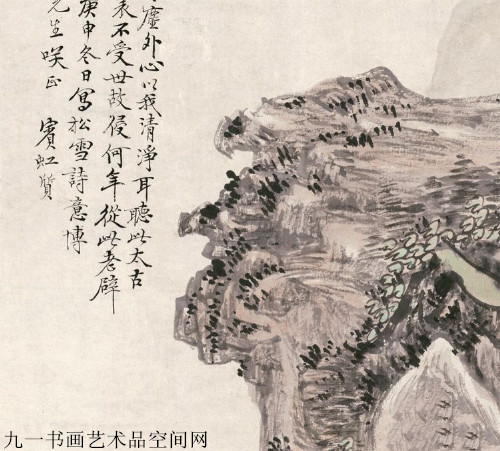 塵外心以我清淨耳聽此太古
表不受世故侵何年從此老辟
庚申冬日寫松雪詩意博
先生咲正 賓虹質
九一书画艺术品空间网